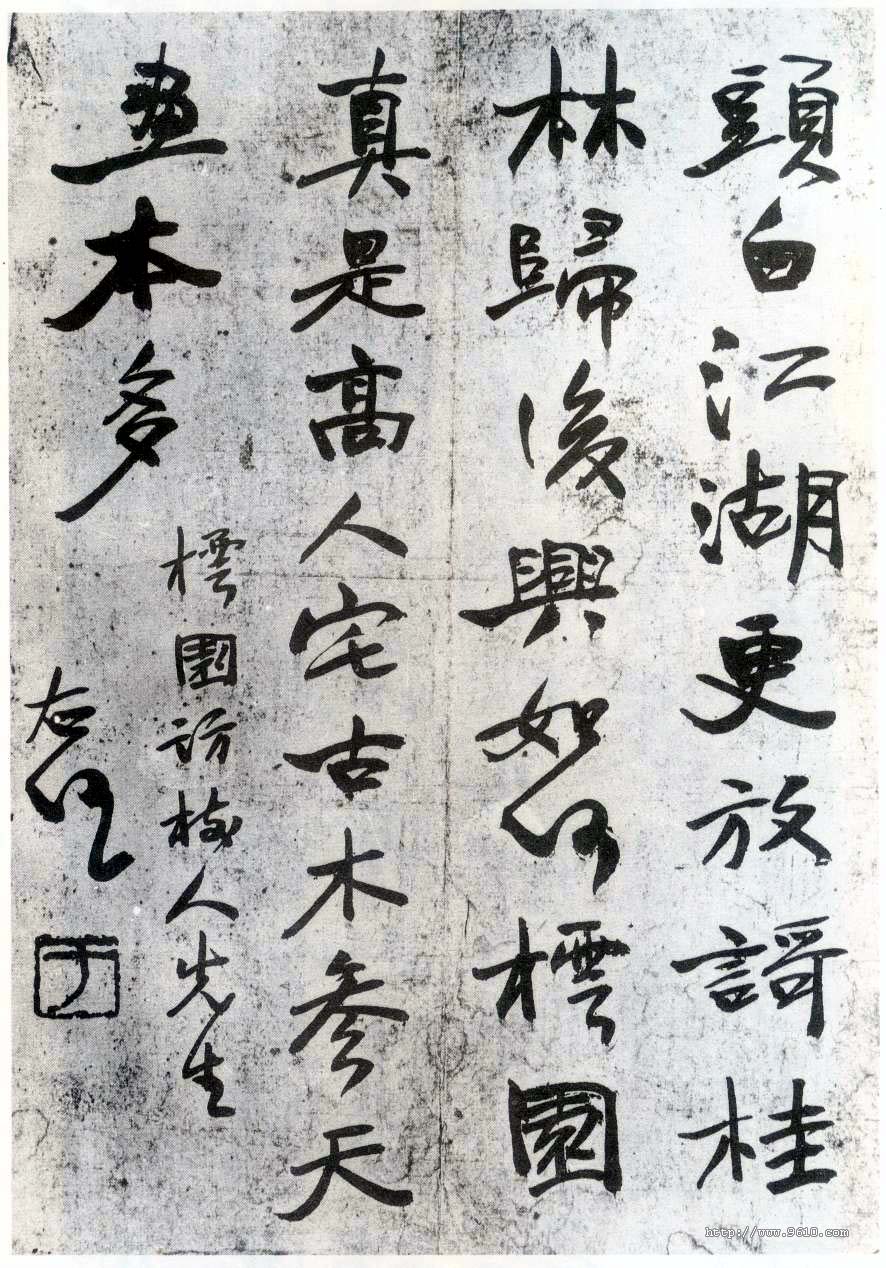 頭白江湖更放謌桂
林歸後興如何橒園
真是高人宅古木參天
畫本多
橒園訪人先生
右任
于
http://www.9610.com